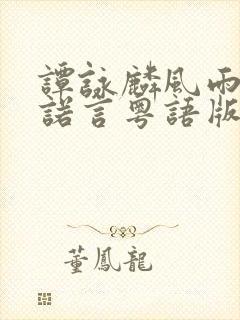 譚詠麟風雨
諾言粵語版
董鳳龍